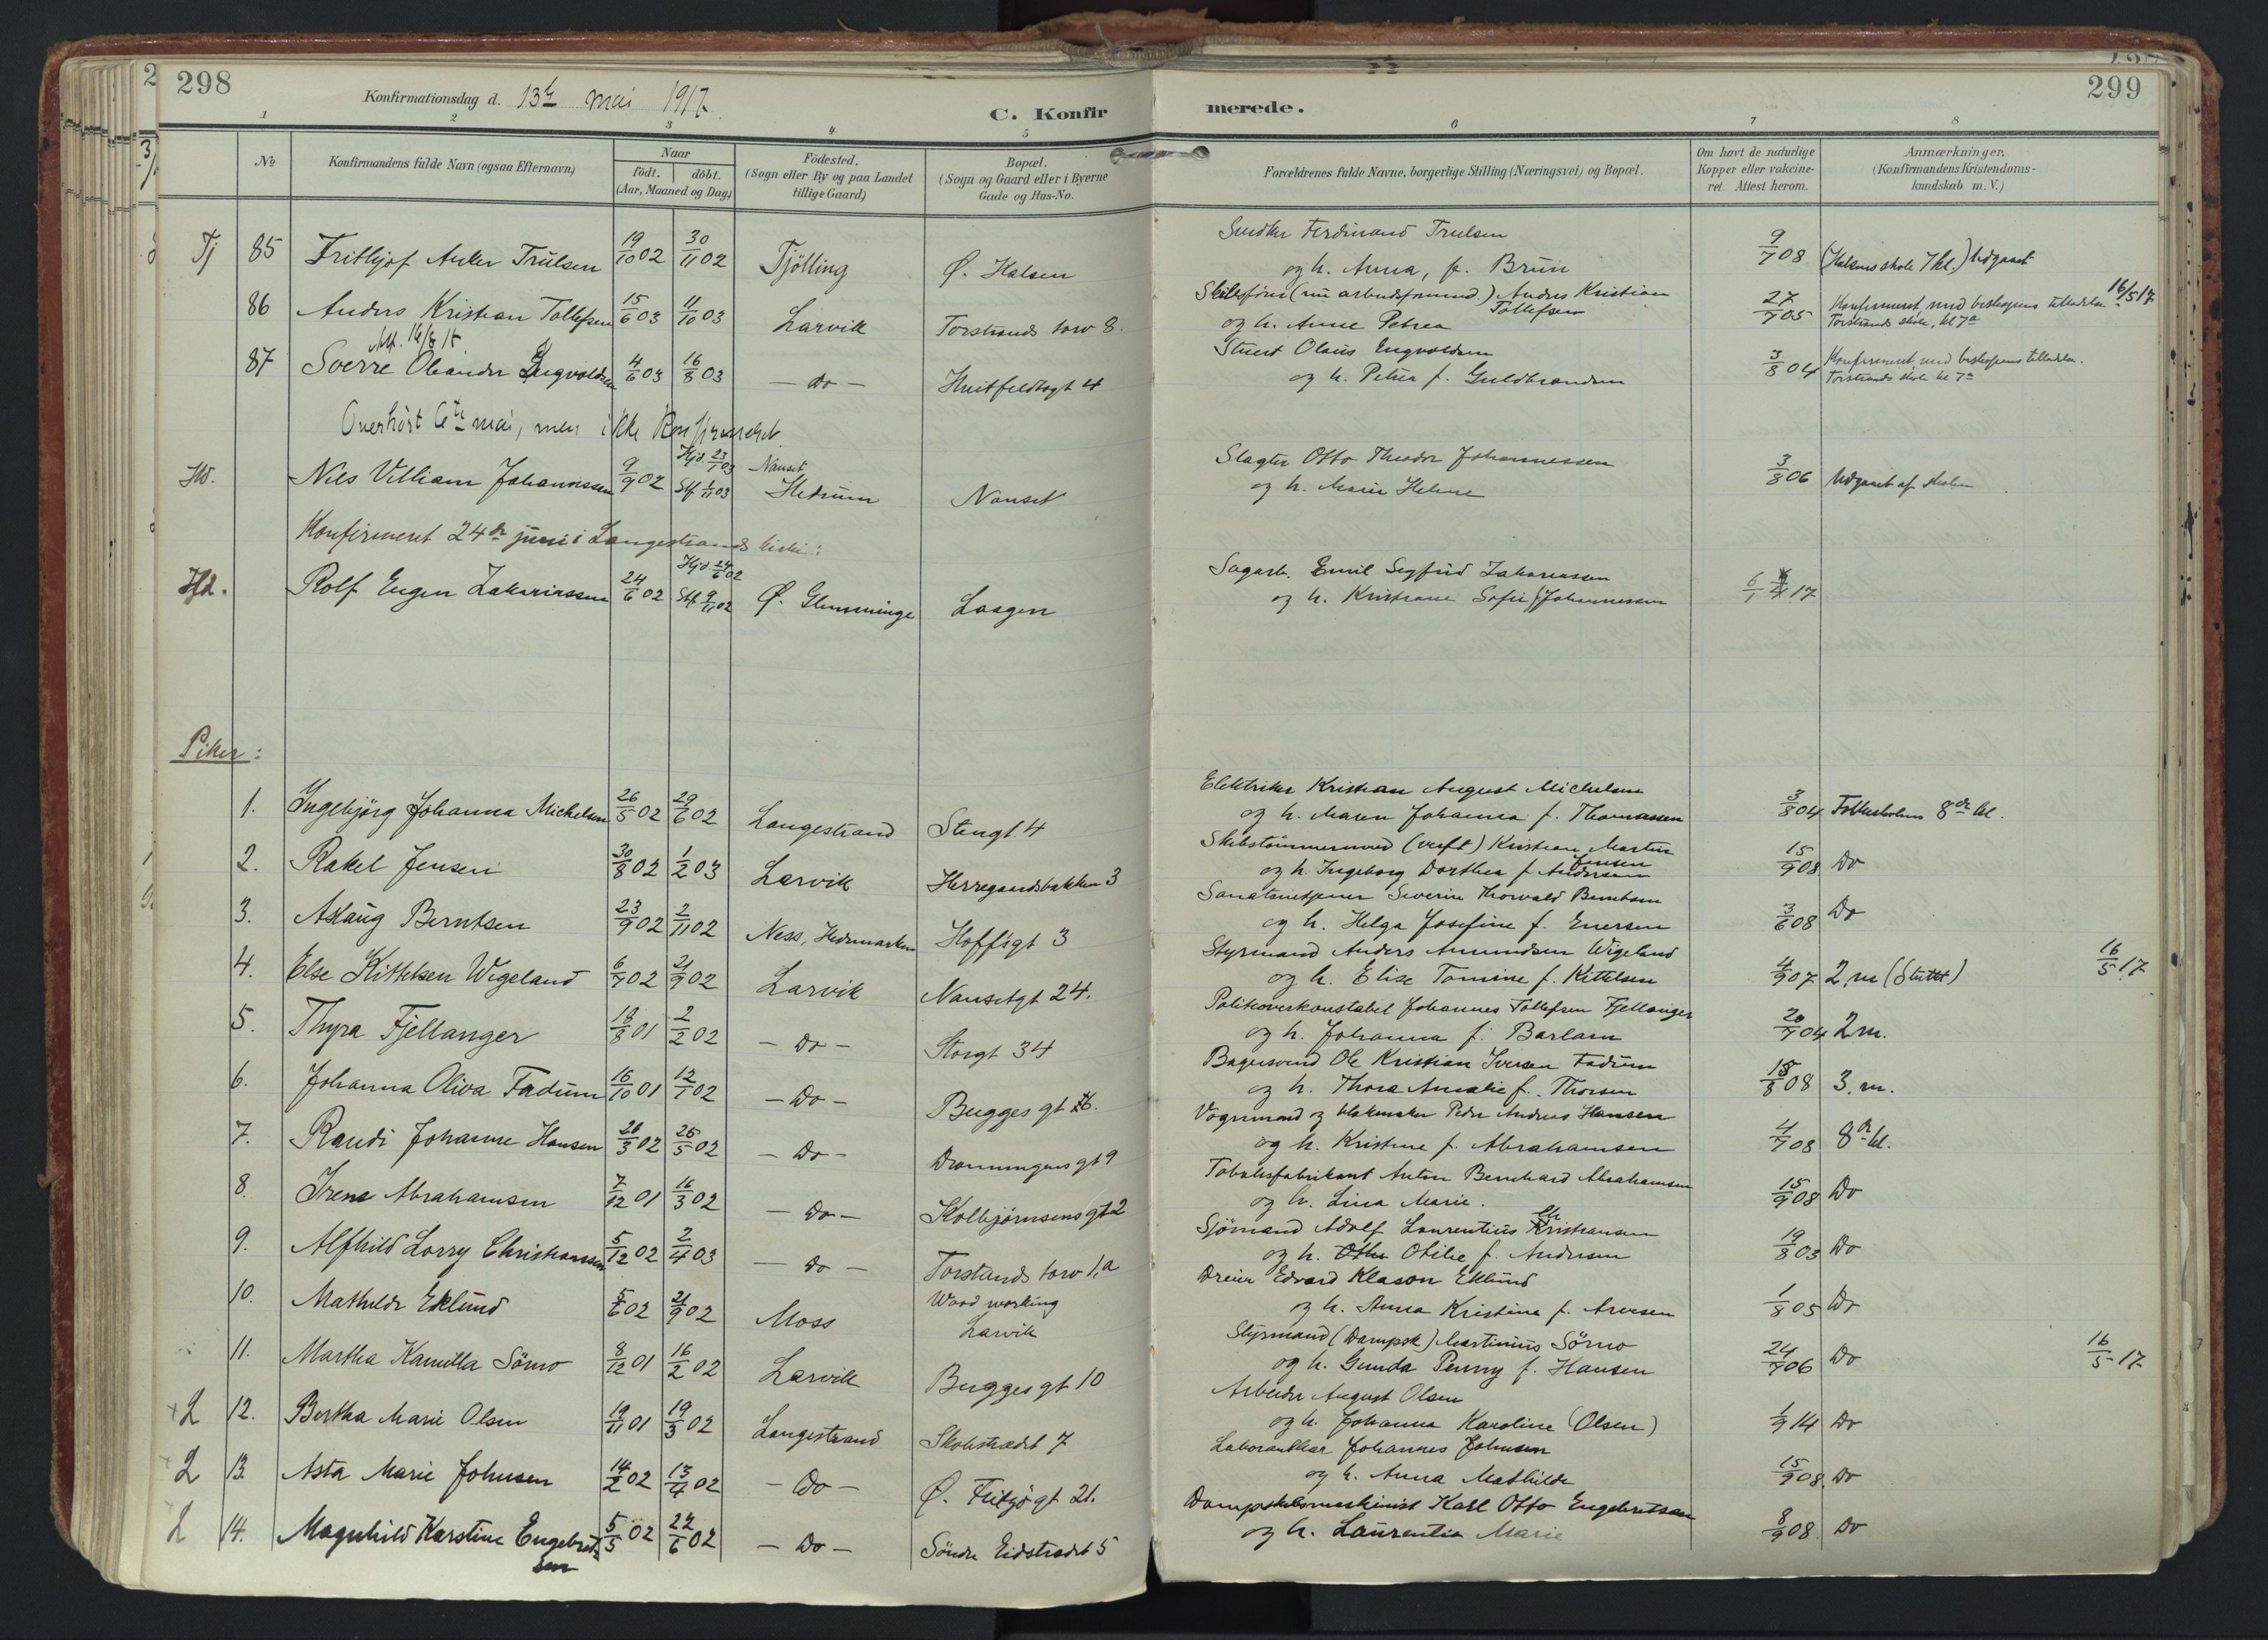 298
Konfirmationsdag d. 13de mai 1917.
C. Konfirmerede.
299
1 2 3 4 5 6 7 8
No
Konfirmandens fulde Navn (ogsaa Efternavn)
Naar
födt. döbt.
(Aar, Maaned og Dag)
Födested.
(Sogn eller By og paa Landet
tillige Gaard)
Bopæl.
(Sogn og Gaard eller i Byerne
Gade og Hus-No.
Forældrenes fulde Navne, borgerlige Stilling (Næringsvei) og Bopæl.
Om havt de naturlige
Kopper eller vakcine-
ret. Attest herom.
Anmærkninger.
(Konfirmandens Kristendoms-
kundskab m. V.)
Tj 85 Frithjof Anker Trulsen 19/10 02 30/11 02 Tjölling Ø. Halsen
Ferdinand Trulsen
og h. Anna, f. Brun 9/7 08 (Halsens skole 7 kl.) Udgaat
86 Anders Kristian Tollefsen 15/6 03 11/10 03 Larvik Torstrands torv 8.
(nu arbeidsformand.) Anders Kristian
Tollefsen
og h. Anne Petrea 27/7 05 Konfirmeret med biskopens tilladelse 16/5 17
Torstrands skole, kl 7a
87 Sverre Oleander Engvoldsen 4/6 03 16/8 03 - Do - Huitfeldtsgt 4
Stuert Olaus Engvoldsen
og h. Petrea f. Guldbrandsen 3/8 04 Konfirmeret med biskopens tilladelse.
Torstrands skole kl 7a
Overhört 6te mai, men ikke konfirmeret.
Hd. Nils Villiam Johannessen 9/9 02 Hjd. 23/1 03 Stf 1/11 03 Nanset
Hedrum Nanset
Slagter Otto Theodor Johannessen
og h. Marie Helene 3/8 06 Udgaaet af skolen
Konfirmeret 24de juni i Langestrands kirke:
Hd. Rolf Eugen Zakariassen 24/6 02 Hjd. 24/6 02 Stf 9/11 02 Ø. Glemminge Laagen
Sagarb. Emil Segfrid Zakariassen
og h. Kristiane Sofie Johannessen 6/1 17
Piker:
1. Ingebjörg Johanna Michelsen 26/5 02 29/6 02 Langestrand Stengt. 4
Elektriker Kristian August Michelsen
og h. Maren Johanna f. Thomassen 3/8 04 Folkeskolens 8de kl.
2. Rakel Jensen 30/8 02 1/2 03 Larvik Herregaardsbakken 3
Skibstömmermand (verft) Kristian Martin
Jensen
og h. Ingeborg Dorthea f. Andersen 15/9 08 Do
3. Aslaug Berntsen 23/9 02 2/11 02 Ness, Hedemarken Hoffsgt 3
Severin Thorvald Berntsen
og h. Helga Josefine f. Enersen 3/6 08 Do
4. Else Kittelsen Wigeland 6/7 02 21/9 02 Larvik Nansetgt 24.
Styrmand Anders Amundsen Wigeland
og h. Elise Tomine f. Kittelsen 4/9 07 2, m (Sluttet) 16/5 17
5. Thyra Fjellanger 18/8 01 2/2 02 - Do - Storgt 34
Politioverkonstabel Johannes Tollefsen Fjellanger
og h. Johanna f. Barlam 20/7 04 2 m.
6. Johanna Oliva Fadum 16/10 01 12/1 02 - Do - Bugges gt 6.
Bagersvend Ole Kristian Iversen Fadum
og h. Thora Amalie f. Thorsen 15/8 08 3. m.
7. Randi Johanne Hansen 20/3 02 25/5 02 - Do - Dronningens gt 9
Vognmand og blokmaker Peder Andreas Hansen
og h. Kristine f. Abrahamsen 4/7 08 8de kl.
8. Irene Abrahamsen 7/12 01 16/3 02 - Do - Kolbjörnsens gt 2
Tobaksfabrikant Anton Bernhard Abrahamsen
og h. Lina Marie. 15/9 08 Do
9. Alfhild Lorry Christiansen 5/12 02 2/4 03 - Do - Torstrands torv 1, a
Sjömand Adolf Laurentius Christiansen
og h. Otilie f. Andersen 19/8 03 Do
10. Mathilde Eklund 5/6 02 21/9 02 Moss Wood working
Larvik
Dreier Edvard Klason Eklund
og h. Anna Kristina f. Arvesen 1/8 05 Do
11. Martha Kamilla Sörno 8/12 01 16/2 02 Larvik Bugges gt 10
Styrmand (Dampsk) Martinius Sörno
og h. Gunda Penny f. Hansen 24/7 06 Do 16/5 17
+L 12. Bertha Marie Olsen 19/11 01 19/3 02 Langestrand Skolestrædet 7
Arbeider August Olsen
og h. Johanna Karoline (Olsen) 1/9 14 Do
L 13. Asta Marie Johnsen 14/2 02 13/4 02 - Do - Ø. Fritzö gt 21.
Johannes Johnsen
og h. Anna Mathilde 15/9 08 Do
L 14. Magnhild Karstine Engebret-
sen 5/5 02 22/6 02 - Do - Söndre Eidstrædet 5
Dampskibsmaskinist Karl Otto Engebretsen
og h. Laurentia Marie 8/9 08. Do